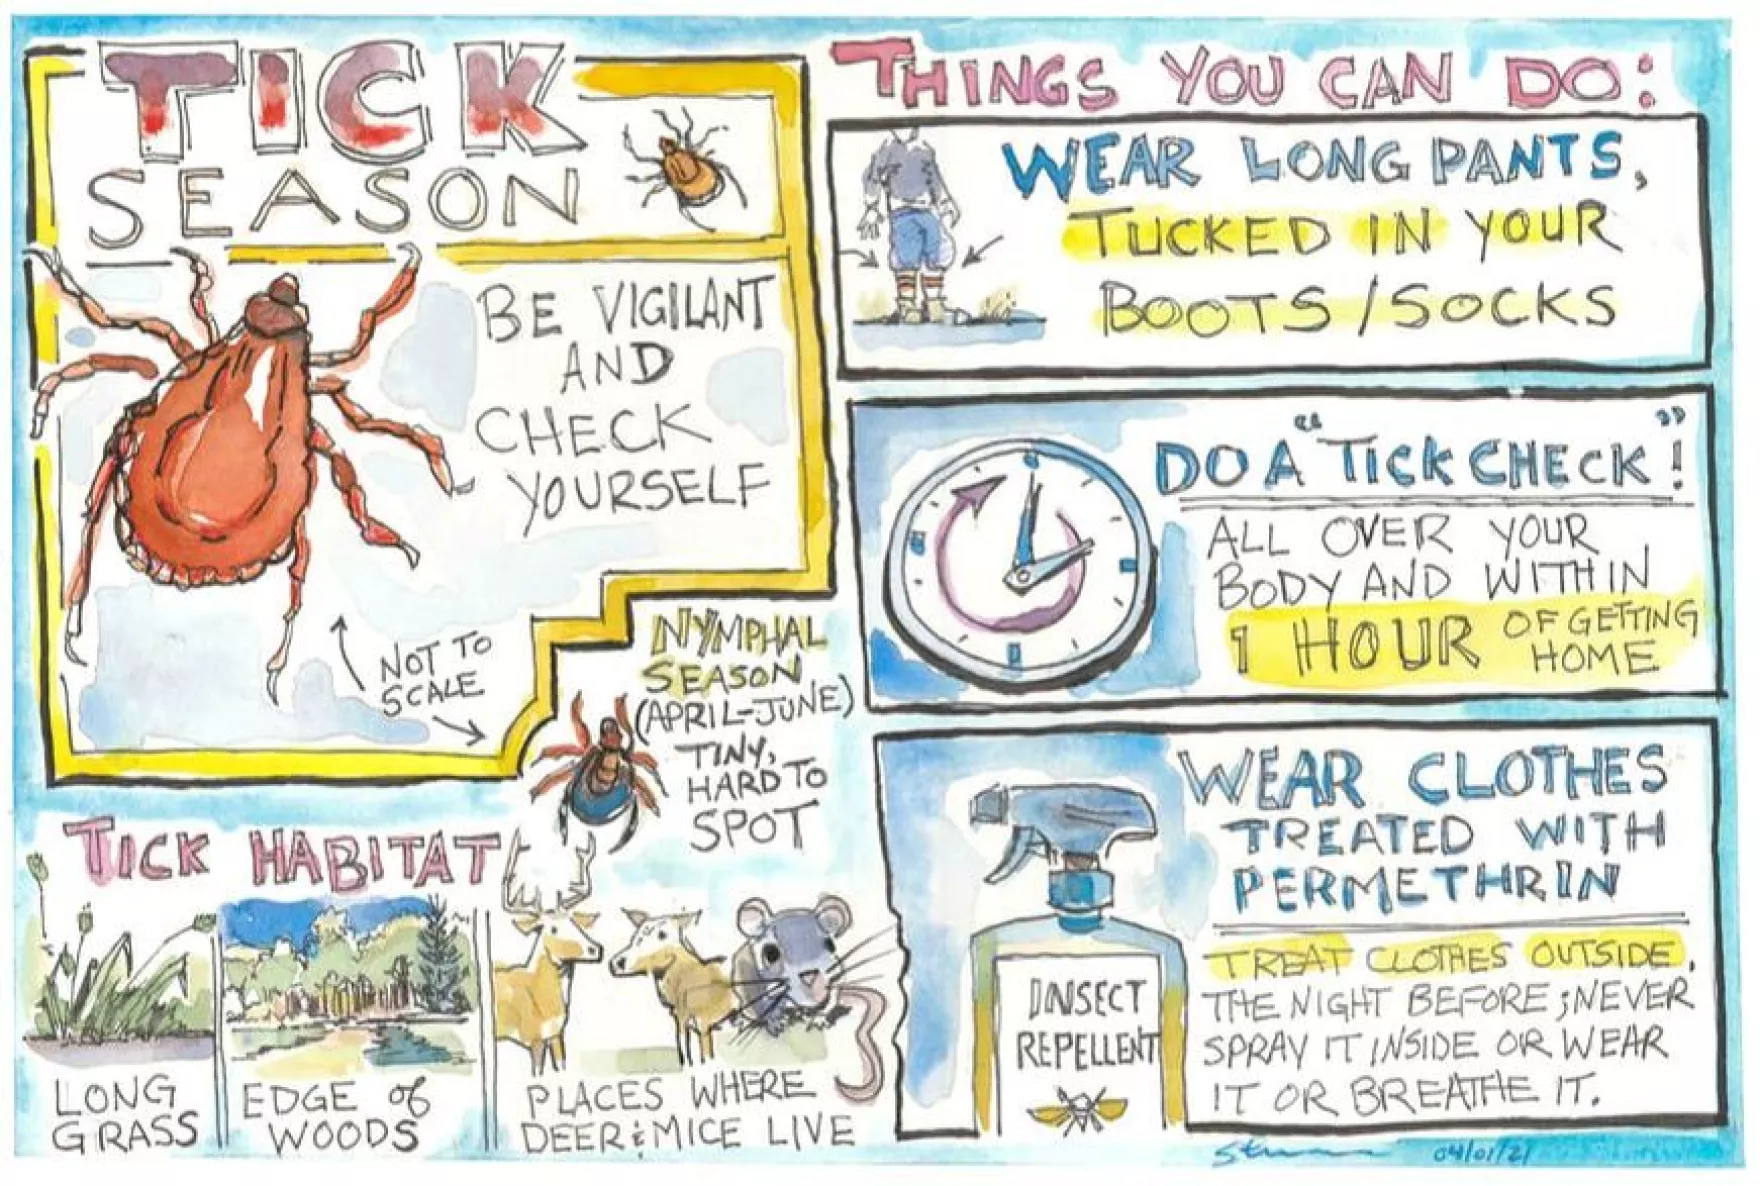 TICK
SEASON
BE VIGILANT
AND
CHECK
YOURSELF
NOT TO
SCALE
NYMPHAL
SEASON
(APRIL-JUNE)
TINY,
HARD TO
SPOT
TICK HABITAT
LONG
GRASS
EDGE of
WOODS
PLACES WHERE
DEER & MICE LIVE
THINGS YOU CAN DO:
WEAR LONG PANTS,
TUCKED IN YOUR
BOOTS/SOCKS
DO A "TICK CHECK"!
ALL OVER YOUR
BODY AND WITHIN
1 HOUR OF GETTING
HOME
WEAR CLOTHES
TREATED WITH
PERMETHRIN
TREAT CLOTHES OUTSIDE,
THE NIGHT BEFORE; NEVER
SPRAY IT INSIDE OR WEAR
IT OR BREATHE IT.
INSECT
REPELLENT
04/01/21